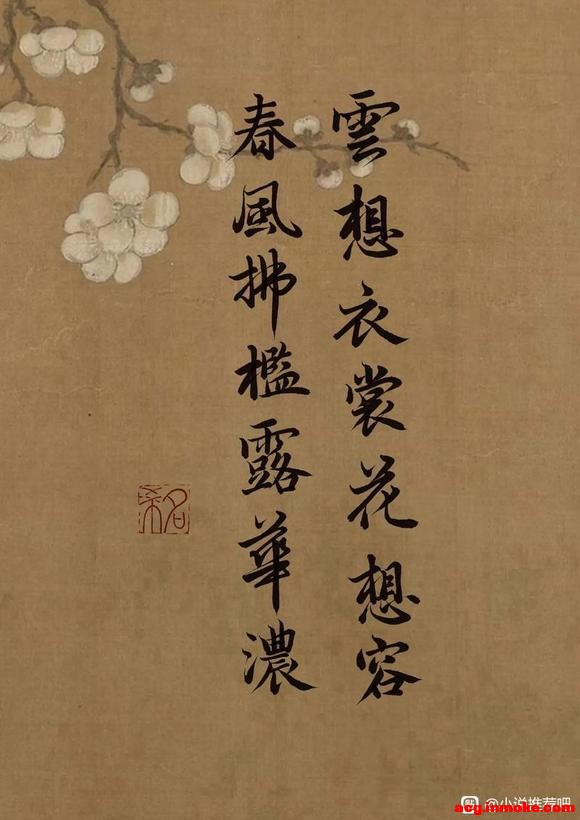 雲想衣裳花想容
春風拂檻露華濃
@小说推荐吧
acg.mmoke.com